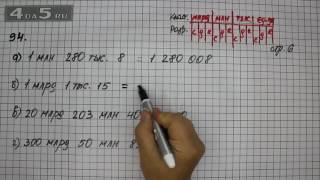 4DA5.RU
класс МЛРД МЛН ТЫС ЕД-ЦЫ
Разр. С Д Е С Д Е С Д Е С Д Е
94.
стр. 6
а) 1 млн 280 тыс. 8 = 1 280 008
б) 1 млрд 1 тыс. 15 =
в) 20 млрд 203 млн 40
г) 300 млрд 50 млн 8